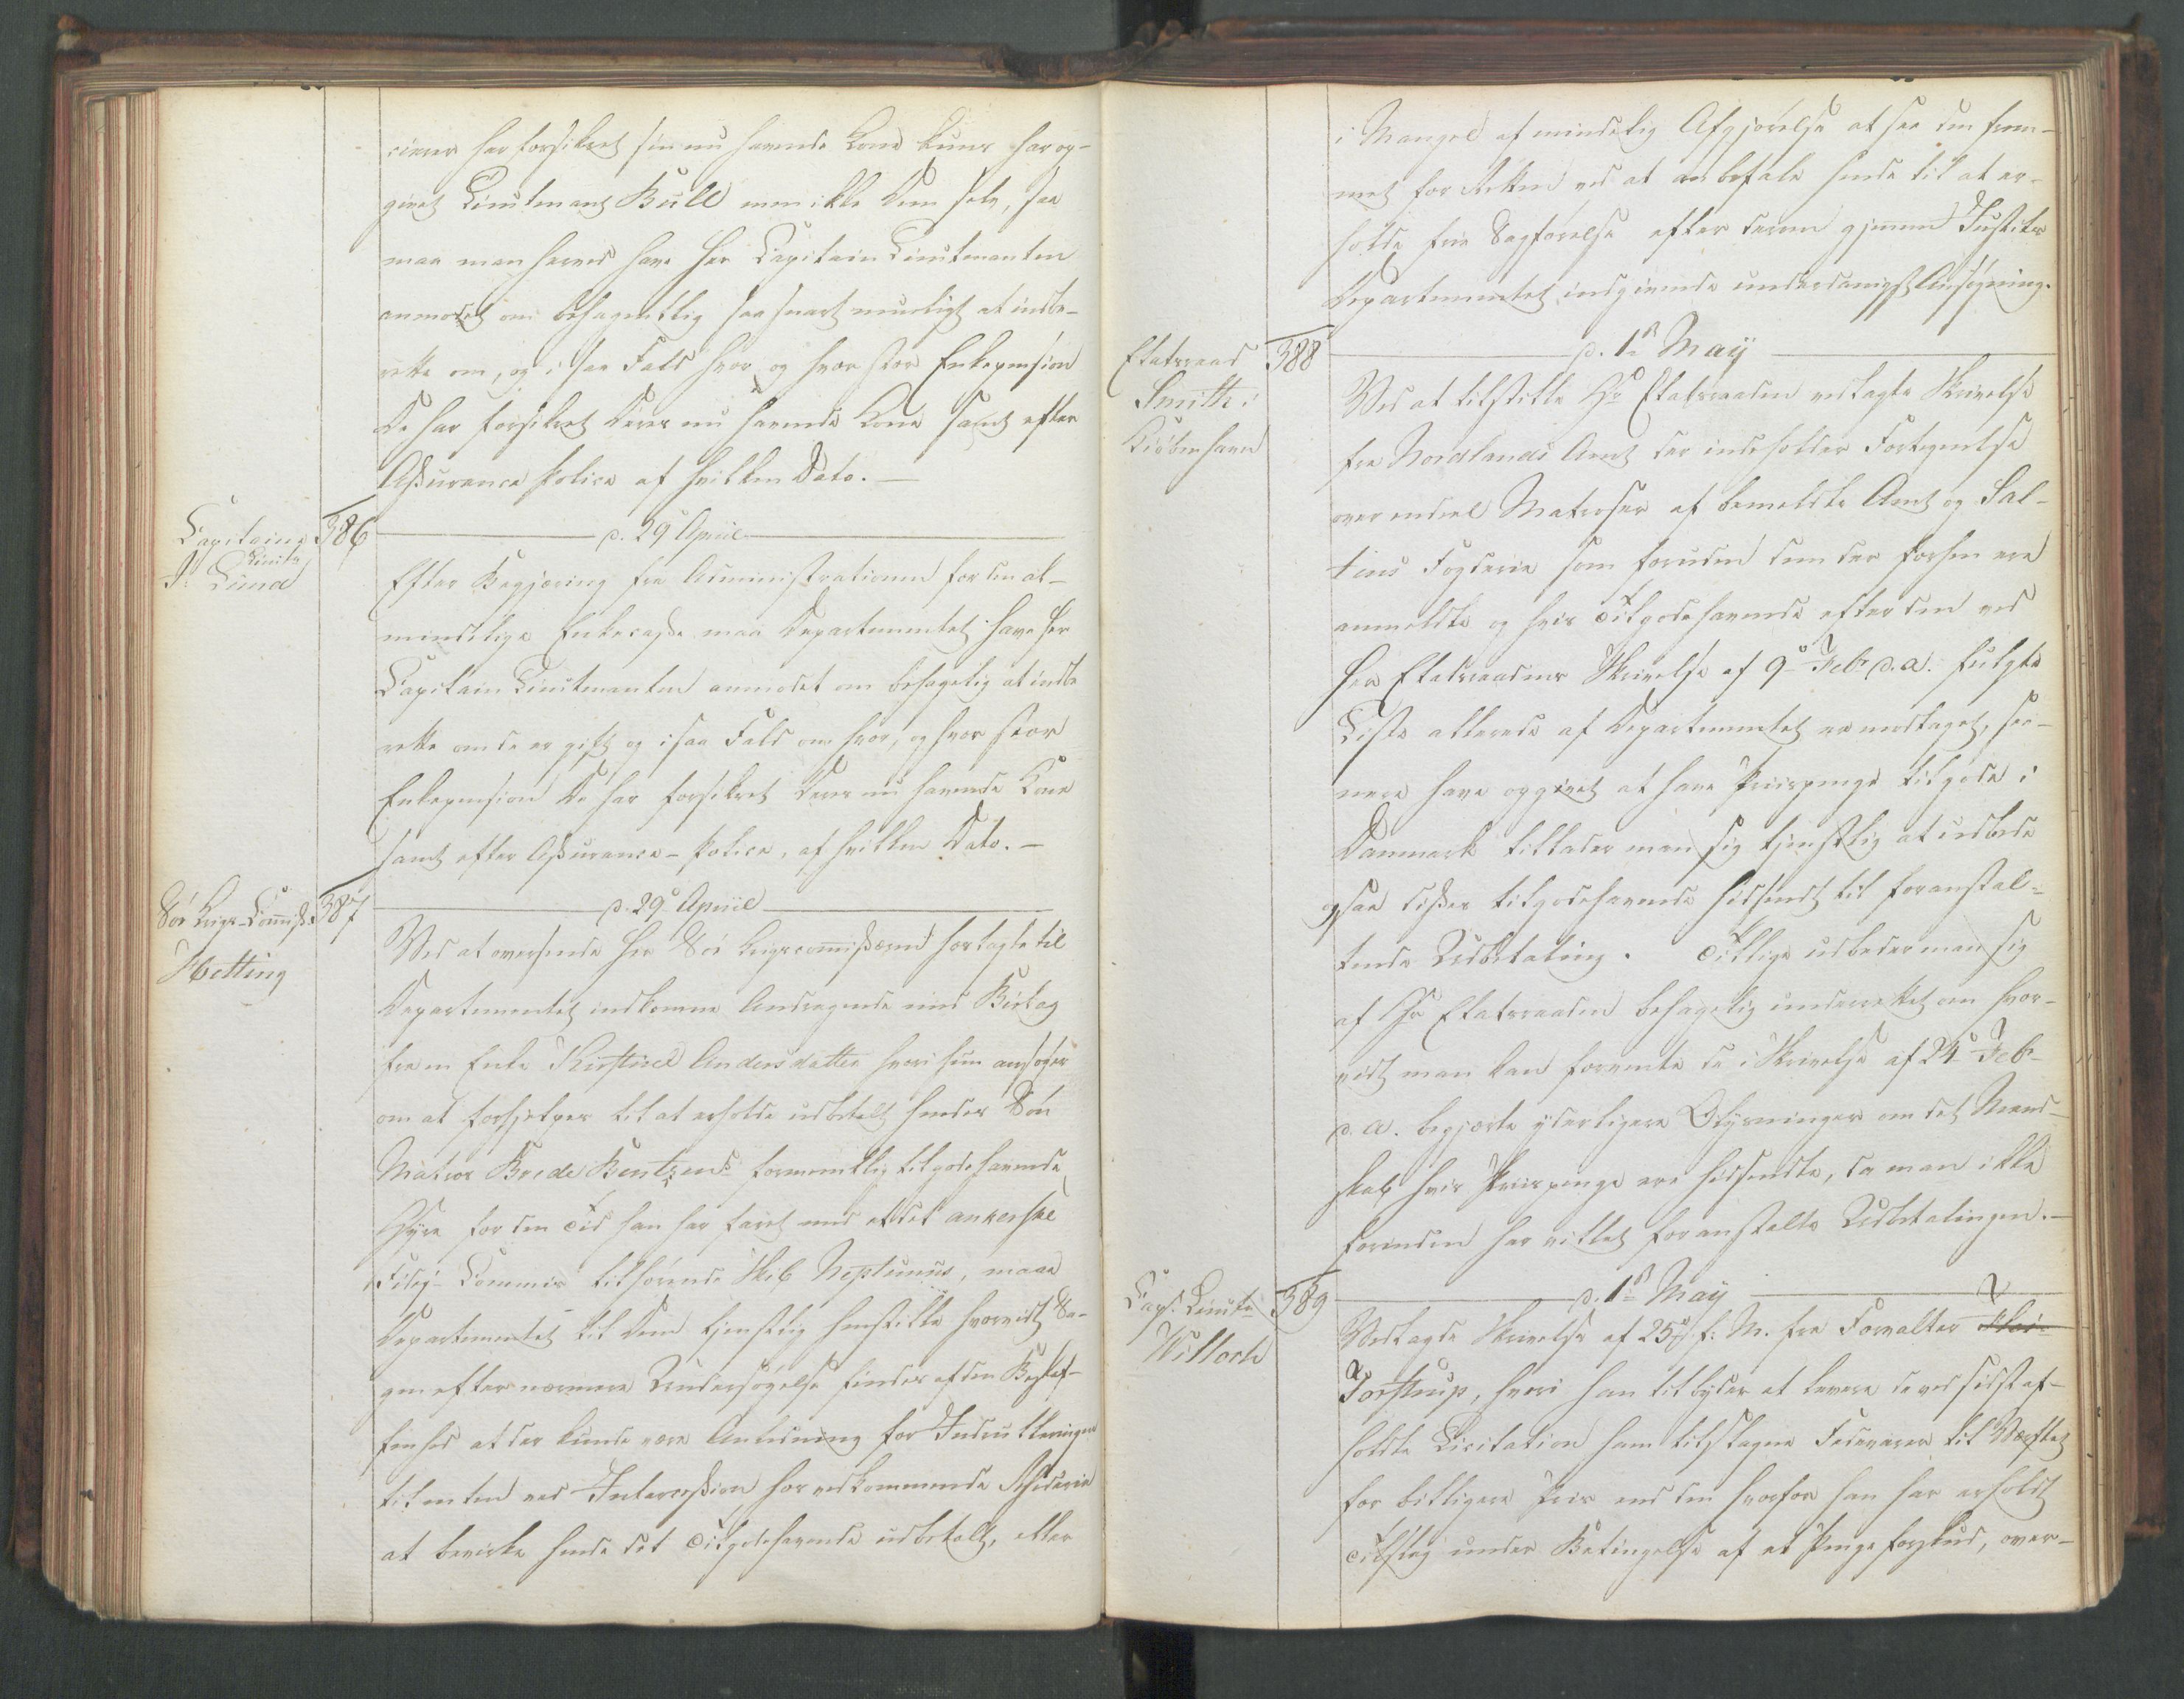 cierer har forsikret sin nu havende Kone kuns har op-
givet Lieutenant Bull men ikke Dem selv, saa
maa man herved have Herr Capitain Lieutenanten
anmodet om behageligtlig saa snart mueligt at indbe-
rette om, og i saa Fald hvor og hvor stor Enkepension
De har forsikret Deres nu havende Kone samt efter
Assurance Police af hvilken Dato. —
Capitaine
Lieutn
Lund
386
d. 29 April
Efter Begjæring fra Administrationen for den al-
mindelige Enkecasse maa Departementet have Herr
Capitain Lieutenanten anmodet om behagelig at indbe
rette om De er gift og i saa Fald om hvor, og hvor stor
Enkepension De har forsikret Deres nu havende Kone
samt efter Assurance-Police, af hvilken Dato. —
Söe Krigs-Commiss.
Hetting
387
d. 29 April
Ved at oversende Herr Söe Krigscommissæren hoslagte til
Departementet indkomne Andragende med Bielag
fra en Enke Kirstine Andersdatter hvori hun ansøger
om at forhjelpes til at erholde udbetalt hendes Søn
Matros Brede Bentzens formeentlig tilgodehavende
Hyre for den Tid han har faret med et det ankerske
Fidei-Commis tilhørende Skib Neptunus, maae
Departementet til Dem tjenstlig henstille hvorvidt Sa-
gen efter nærmere Undersøgelse findes af den Beskaf-
fenhed at der kunde være Anledning for Indrulleringen
til enten ved Intercession hos vedkommende Rhederie
at bevirke hende det Tilgodehavende udbetalt, eller
i Mangel af mindelig Afgjørelse at see den frem-
met for Retten ved at anbefale hende til at er-
holde frie Sagførelse efter derom gjennem Justits
Departementet indgivende underdanigst Ansøgning.
Etatsraad
Smith i
Kiöbenhavn
388
d. 1ste May
Ved at tilstille Hr Etatsraaden vedlagte Skrivelse
fra Nordlands Amt der indeholder Fortegnelse
over endeel Matroser af bemeldte Amt og Sal-
tens Fogderie som foruden dem der forhen ere
anmeldte og hvis Tilgodehavende efter den ved
Herr Etatsraadens Skrivelse af 9de Febr d. a. fulgte
Liste allerede af Departementet er modtaget, see-
nere have opgivet at have Priispenge tilgode i
Danmark tillader man sig tjenstlig at udbede
ogsaa disses tilgodehavende hidsendt til foranstal-
tende Udbetaling. Tillige udbeder man sig
af Hr Etatsraaden behagelig underrettet om hvor-
vidt man kan forvente de i Skrivelse af 24de Febr
d. a. begjærte yderligere Oplysninger om det Mand-
skab hvis Priispenge ere hidsendte, da man ikke
forinden har villet foranstalte Udbetalingen. —
Capt. Lieutn
Willoch
389
d. 1ste May
Vedlagde Skrivelse af 25de f: M. fra Forvalter
Torstrup, hvori han tilbyder at levere de ved sidst af-
holdte Licitation ham tilslagne Fedevarer til Værftet
for billigere Priis end den hvorfor han har erholdt
Tilslag under Betingelse af et Penge forskud, over-